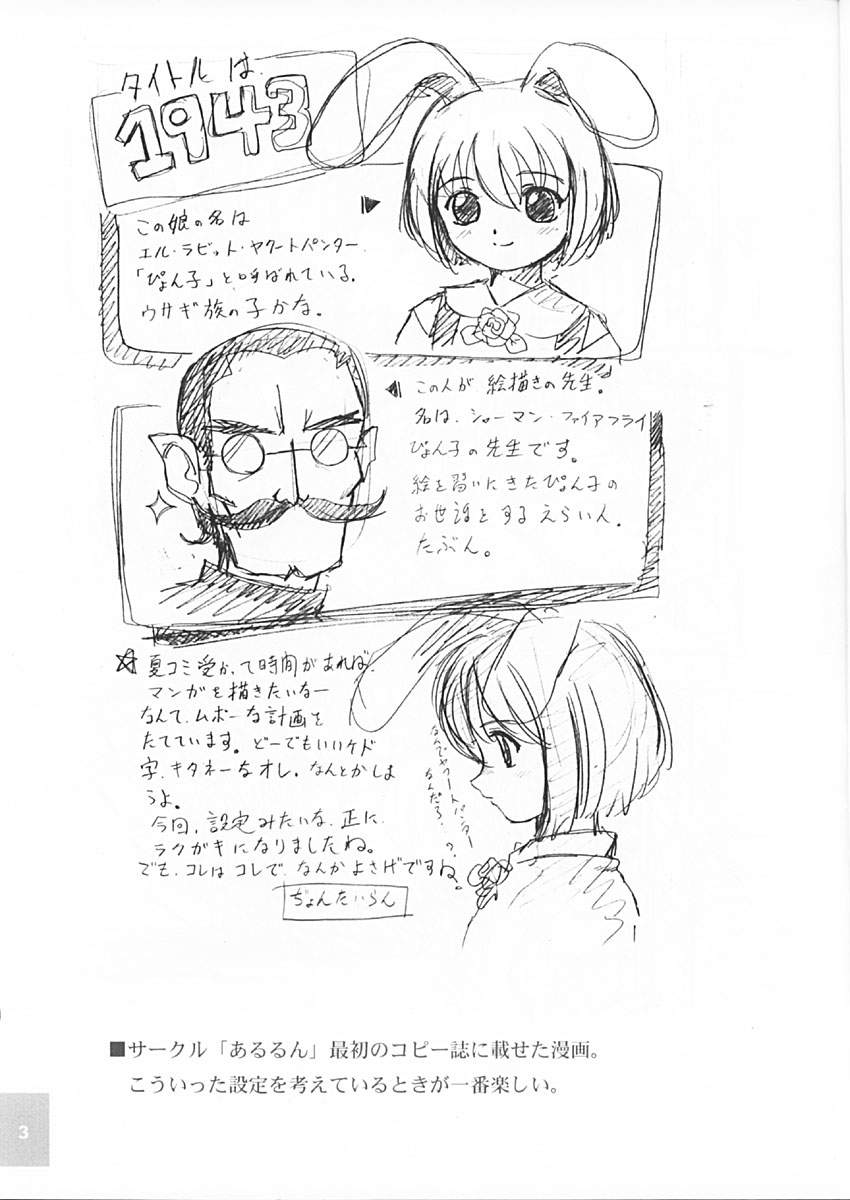 タイトルは
1943
この娘の名は
エル・ラビット・ヤクートパンター.
「ぴょん子」と呼ばれている.
ウサギ族の子かな。
この人が 絵描きの先生。
名は、シャーマン・ファイアフライ
ぴょん子の先生です。
絵を習いにきたぴょん子の
お世話とするえらい人.
たぶん。
☆夏コミ受かって時間があれば、
マンガを描きたいなー
なんて、ムボーな計画を
たてています。どーでもいいケド
字、キタネーなオレ。なんとかしま
うよ。
今回、設定みたいな、正に、
ラクガキになりましたね。
でも、コレはコレで、なんかよさげですね。
なんでヤクートパンター
なんだろ
?
ぢょんたいらん
■サークル「あるるん」最初のコピー誌に載せた漫画。
こういった設定を考えているときが一番楽しい。
3